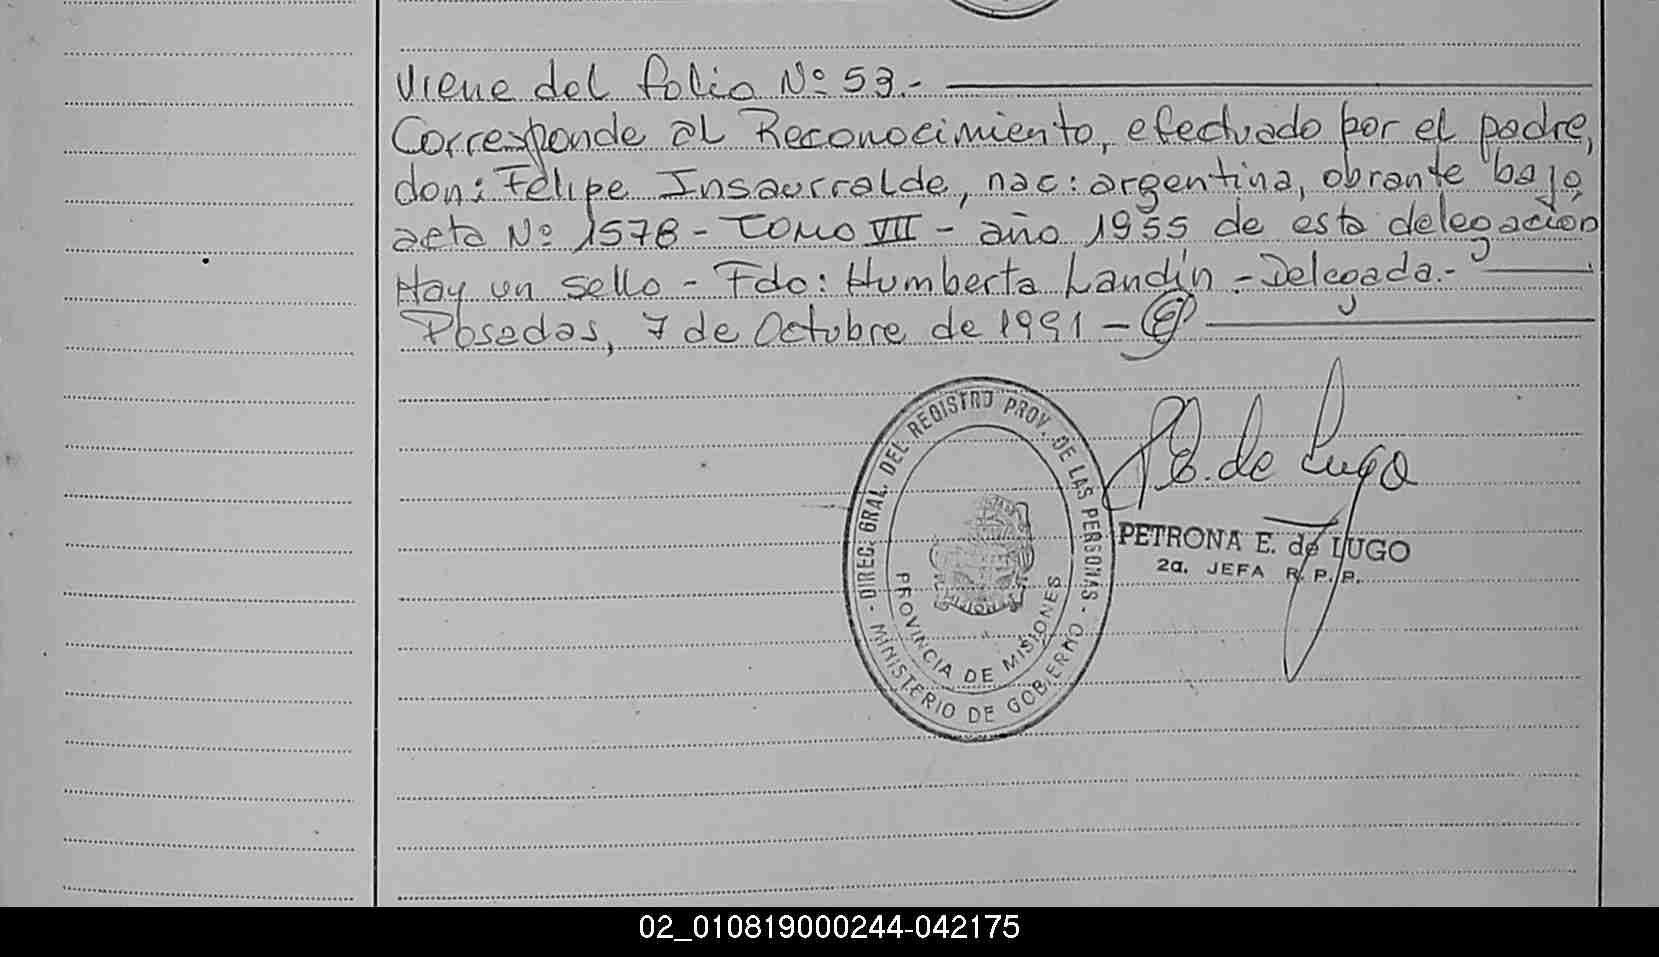 Viene del folio Nº 53.-
Corresponde al Reconocimiento, efectuado por el padre,
don: Felipe Insaurralde, nac: argentina, obrante bajo
acta Nº 1578 - Tomo VIII - año 1955 de esta delegación
Hay un sello - Fdo: Humberta Landín - Delegada.-
Posadas, 7 de Octubre de 1991 -
DIREC. GRAL. DEL REGISTRO PROV. DE LAS PERSONAS
PROVINCIA DE MISIONES
MINISTERIO DE GOBIERNO
P E. de Lugo
PETRONA E. de LUGO
2a. JEFA R. P. P.
02_010819000244-042175